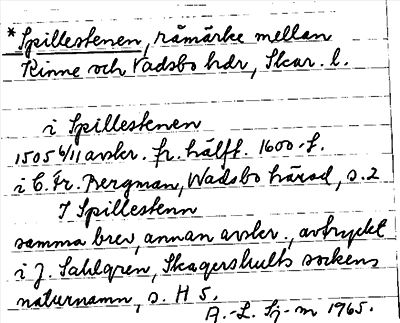 *Spillestenen, råmärke mellan
Kinne och Vadsbo hdr, Skar. l.
i Spillestenen
1505 6/11 avskr. fr. hälft. 1600-t.
i C. Fr. Bergman, Wadsbo härad, s. 2
I Spillestenn
samma brev, annan avskr., avtryckt
i J. Sahlgren, Skagershults sockens
naturnamn, s. H 5.
A.-L. Sj-m 1965.